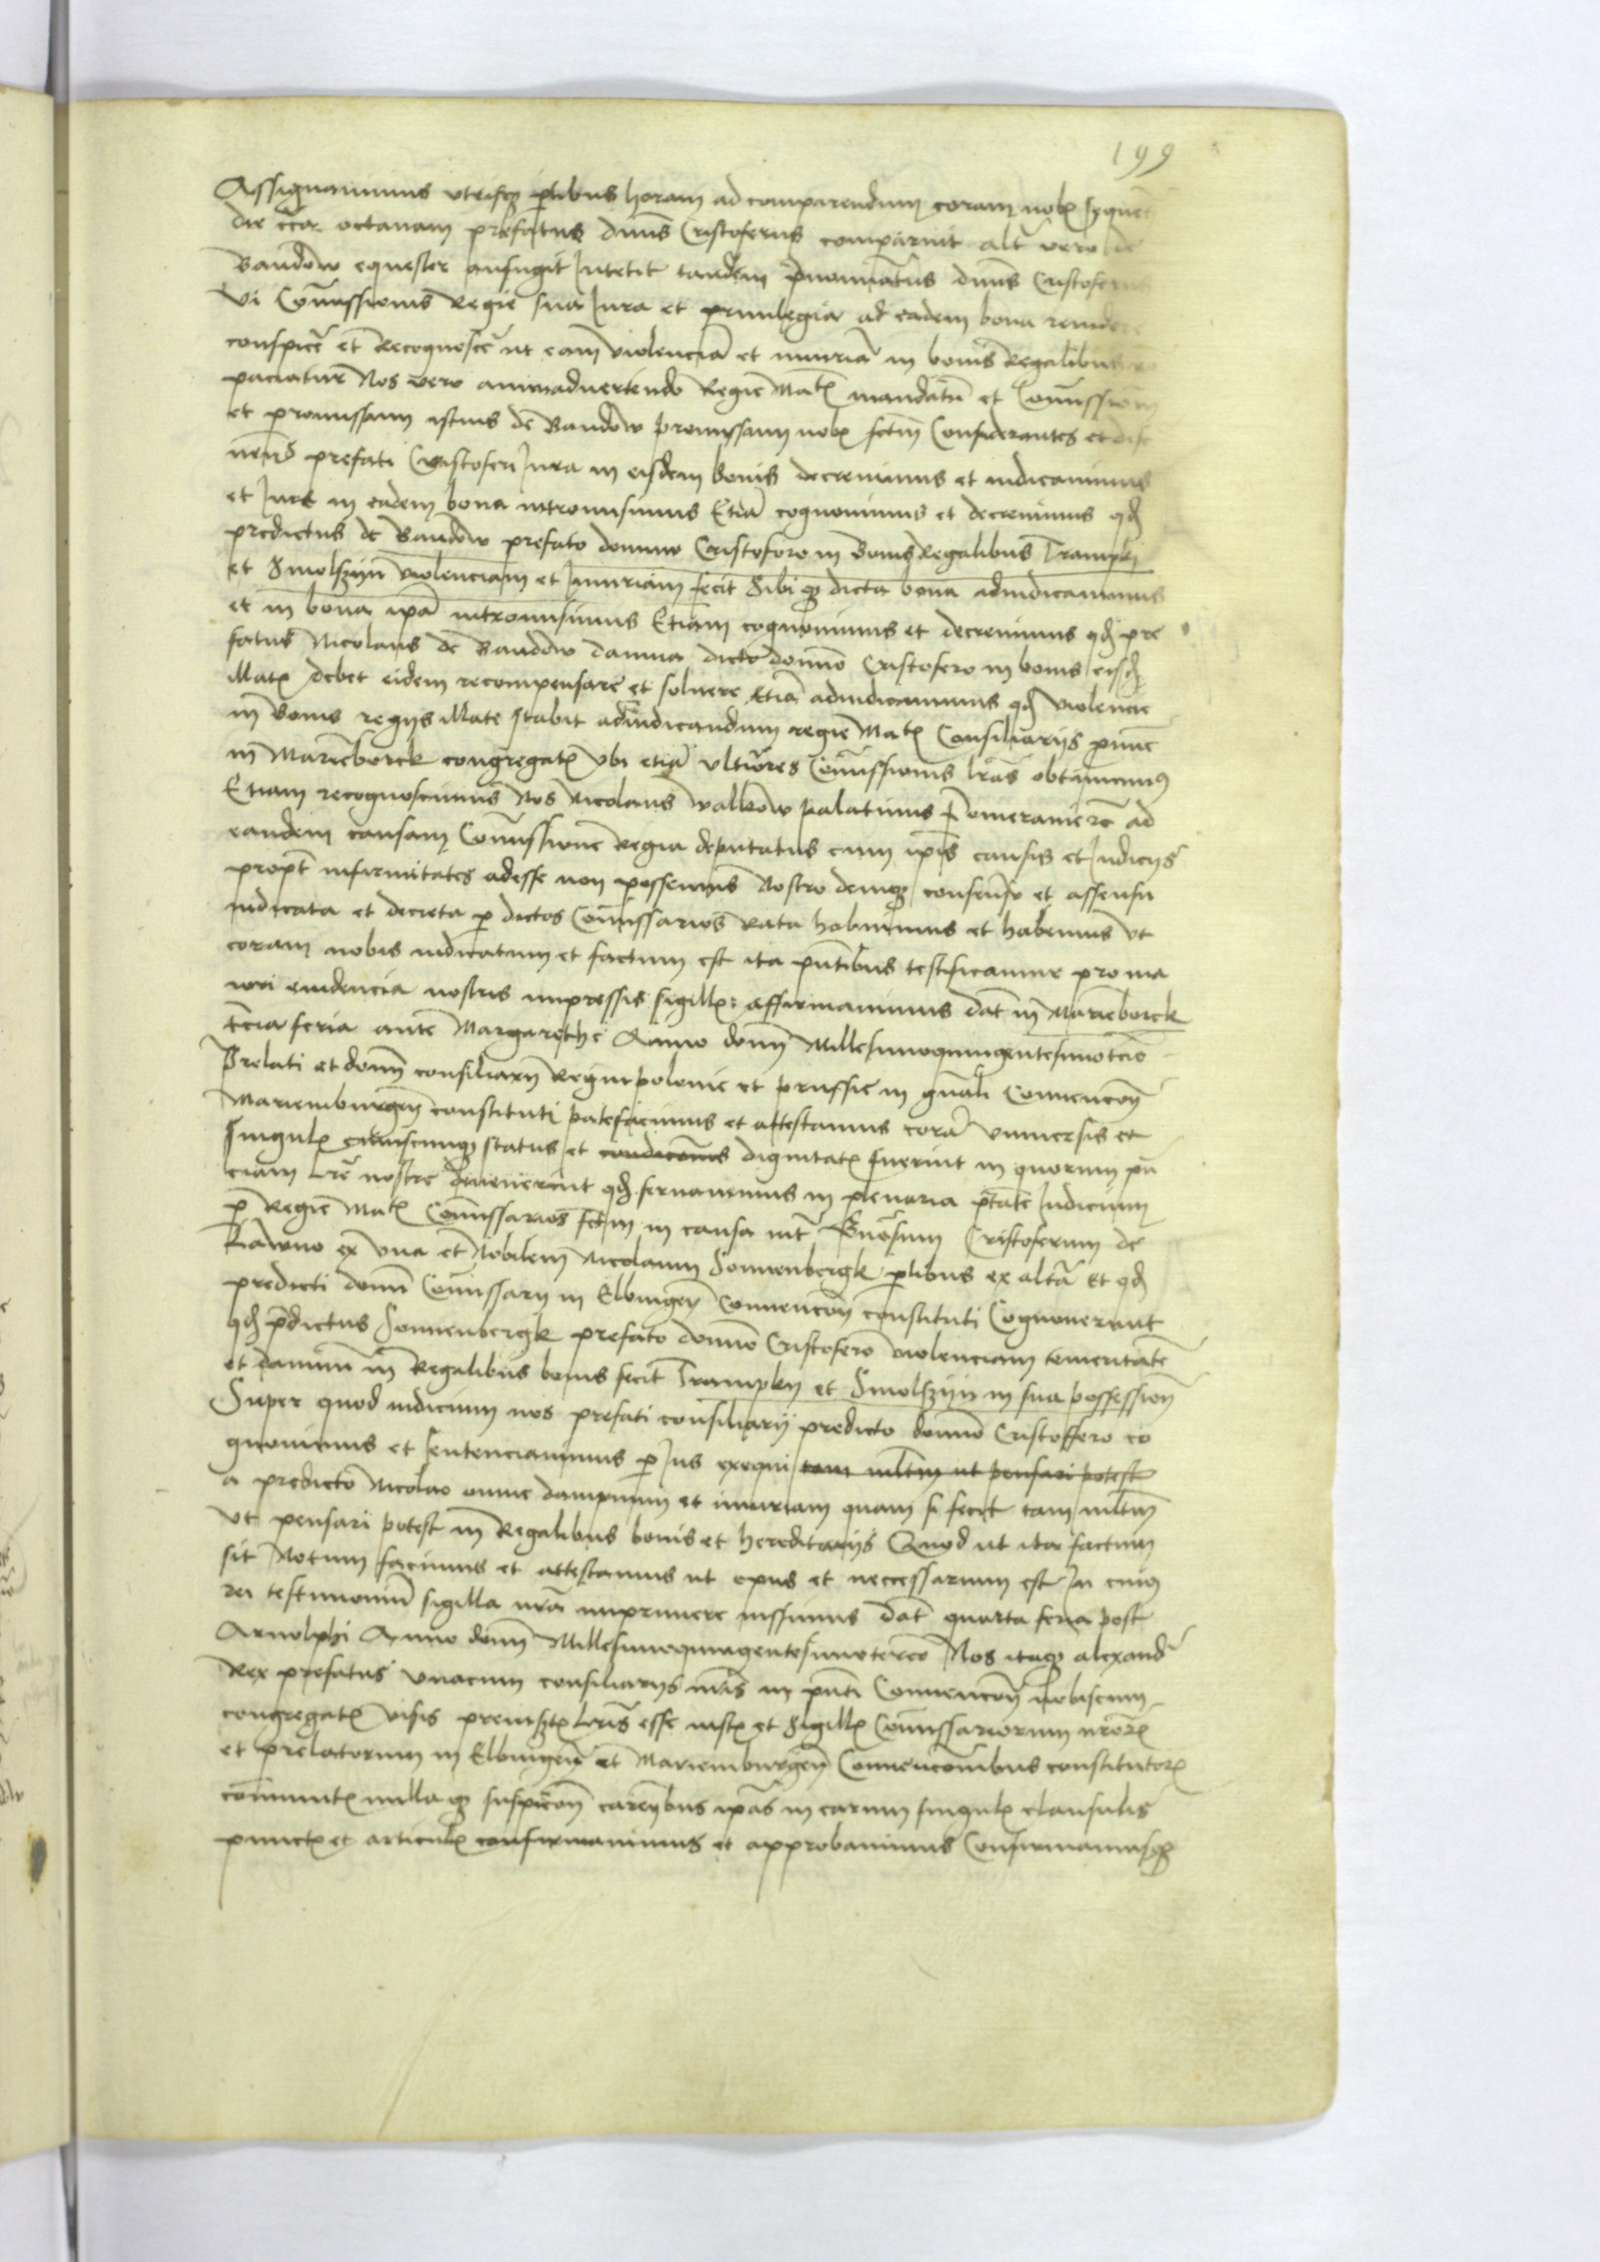 199
Assignavimus utrisq3 ptibus horam ad comparendum coram nob sequen
die circa octavam prefatus dnus Cristoferus comparuit alt vero de
Bandow equester aufugit tandem prenominatus dnus Cristoferus
Vi Comissionis Regie sua Iura et privilegia ad eadem bona
conspice et Recognosce ut eam violencia et iniuria in bonis Regalibus
paciatur Nos vero animadvertendo Regie Mats mandatu et Comissionem
et promissam istius de Bandow promissam nob fctm Considerantes et
prefati Cristoferi Iura in eisdem bonis decrevimus et iudicavimus
et Iure in eadem bona intromisimus Etia cognovimus et decrevimus qd
predictus de Bandow prefato domino Cristoforo in Bonis Regalibus Trampky
et Smolszyn violenciam et Iniuriam fecit Sibiq3 dicta bona adiudicavimus
et in bona ipa intromisimus Etiam cognovimus et decrevimus qd pre
fatus Nicolaus de Bandow damna dicto domno Cristofero in bonis eisd
illats debet eidem recompensare et solvere Etia adiudicavimus qd violencie
in Bonis regijs illate stabit adiudicandum regie Mats Consiliarijs
in Marieborck congregats ubi etia ultiores Comissionis lras obtinuimus
Etiam recognoscimus Nos Nicolaus Walkow palatinus Pomeranie ad
eandem causam Comissione Regia deputatus cum ipis causis et Iudicijs
propt infirmitates adesse non possemus Nostro deniq3 consensu et assensu
iudicata et decreta p dictos Comissarios Rata habuimus et habemus ut
coram nobis iudicatum et factum est ita pntibus testificamur pro ma
iori evidencia nostris impressis sigills affirmavimus Dat in Marieborck
tercia feria ante Margarethe Anno domni Millesimoquingentesimotercio
Prelati et domni consiliarij Regni polonie et prussie in gnali Convencoe
Marienburgen constituti patefacimus et attestamus cora universis et
singuls cuiuscunq3 status et condicionis dignitats fuerint in quorum pn
ciam Lre nostre devenerint qd servavimus in plenaria ptate Iudicium
p Regie Mats Comissarios fctm in causa int Gnosum Cristoferum de
Rawno ex una et Nobilem Nicolaum Sonnenbergk ptibus ex alta Et qd
predicti domni Comissarij in Elbingen Convencoe constituti Cognoverunt
qd pdictus Sonnenbergk prefato domno Cristofero violenciam temeritate
et damnu in Regalibus bonis fecit Trampky et Smolszyn in sua possessione
Super quod iudicium nos prefati consiliarij predicto domno Cristoffero co
gnovimus et sentenciavimus p Ius exequi tam multum ut pensari potest
a predicto Nicolao omne dampnum et iniuriam quam si fecit tam multum
Ut pensari potest in Regalibus bonis et hereditarijs Quod ut ita factum
sit Notum facimus et attestamus ut opus et neccessarium est In cuius
rei testimoniu sigilla nra imprimere iussimus Dat quarta feria post
Arnolphi Anno domni Millesimoquingentesimotercio Nos itaq3 alexand
Rex prefatus unacum consiliarijs nris in pnti Convencoe nobiscum
congregats visis preinserts Lris esse iusts et Sigills Comissariorum nrors
et prelatorum in Elbingen et Marienburgen Convencionibus constitutors
communits nullaq3 suspicoe carentibus ipas in earum singuls clausulis
puncts et articuls confirmavimus et approbavimus Confirmamusq3